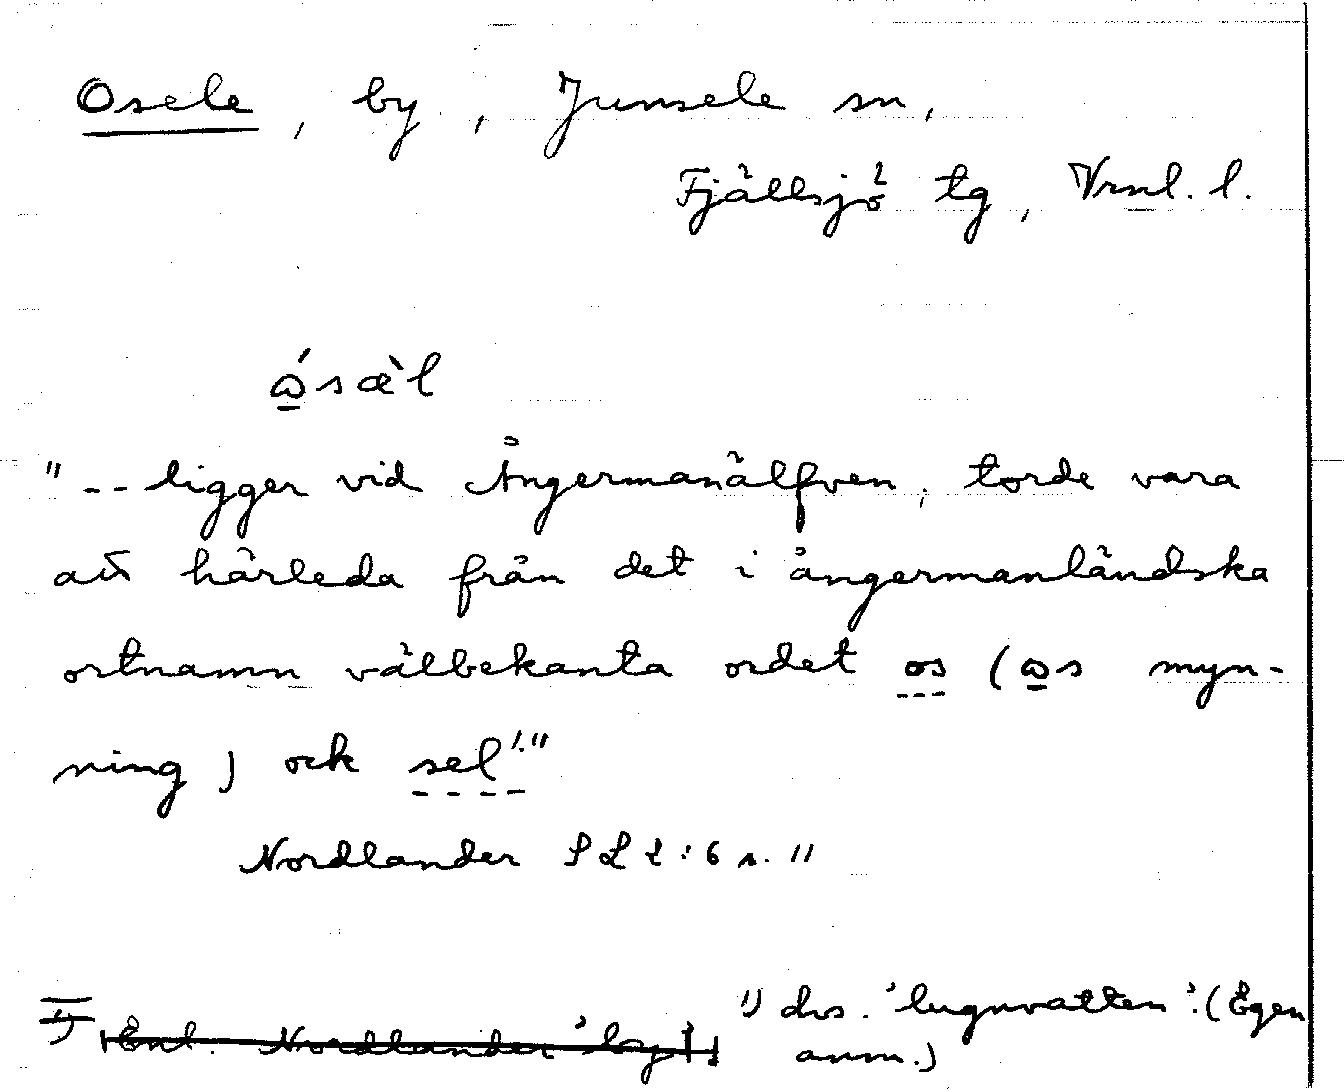 Osele, by, Junsele sn,
Fjällsjö tg, Vrnl. l.
ώsæ̀l
"-- ligger vid Ångermanälfven, torde vara
att härleda från det i ångermanländska
ortnamn välbekanta ordet os (ωs myn-
ning) ock sel¹⁾."
Nordlander SL 2:6 s. 11
1) dvs. 'lugnvatten'. (Egen
1) Enl. Nordlander 'by'
anm.)